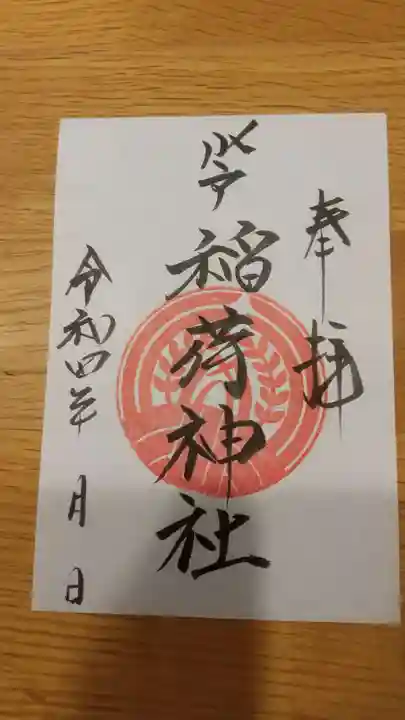 奉拝
稲荷神社
令和四年 月 日